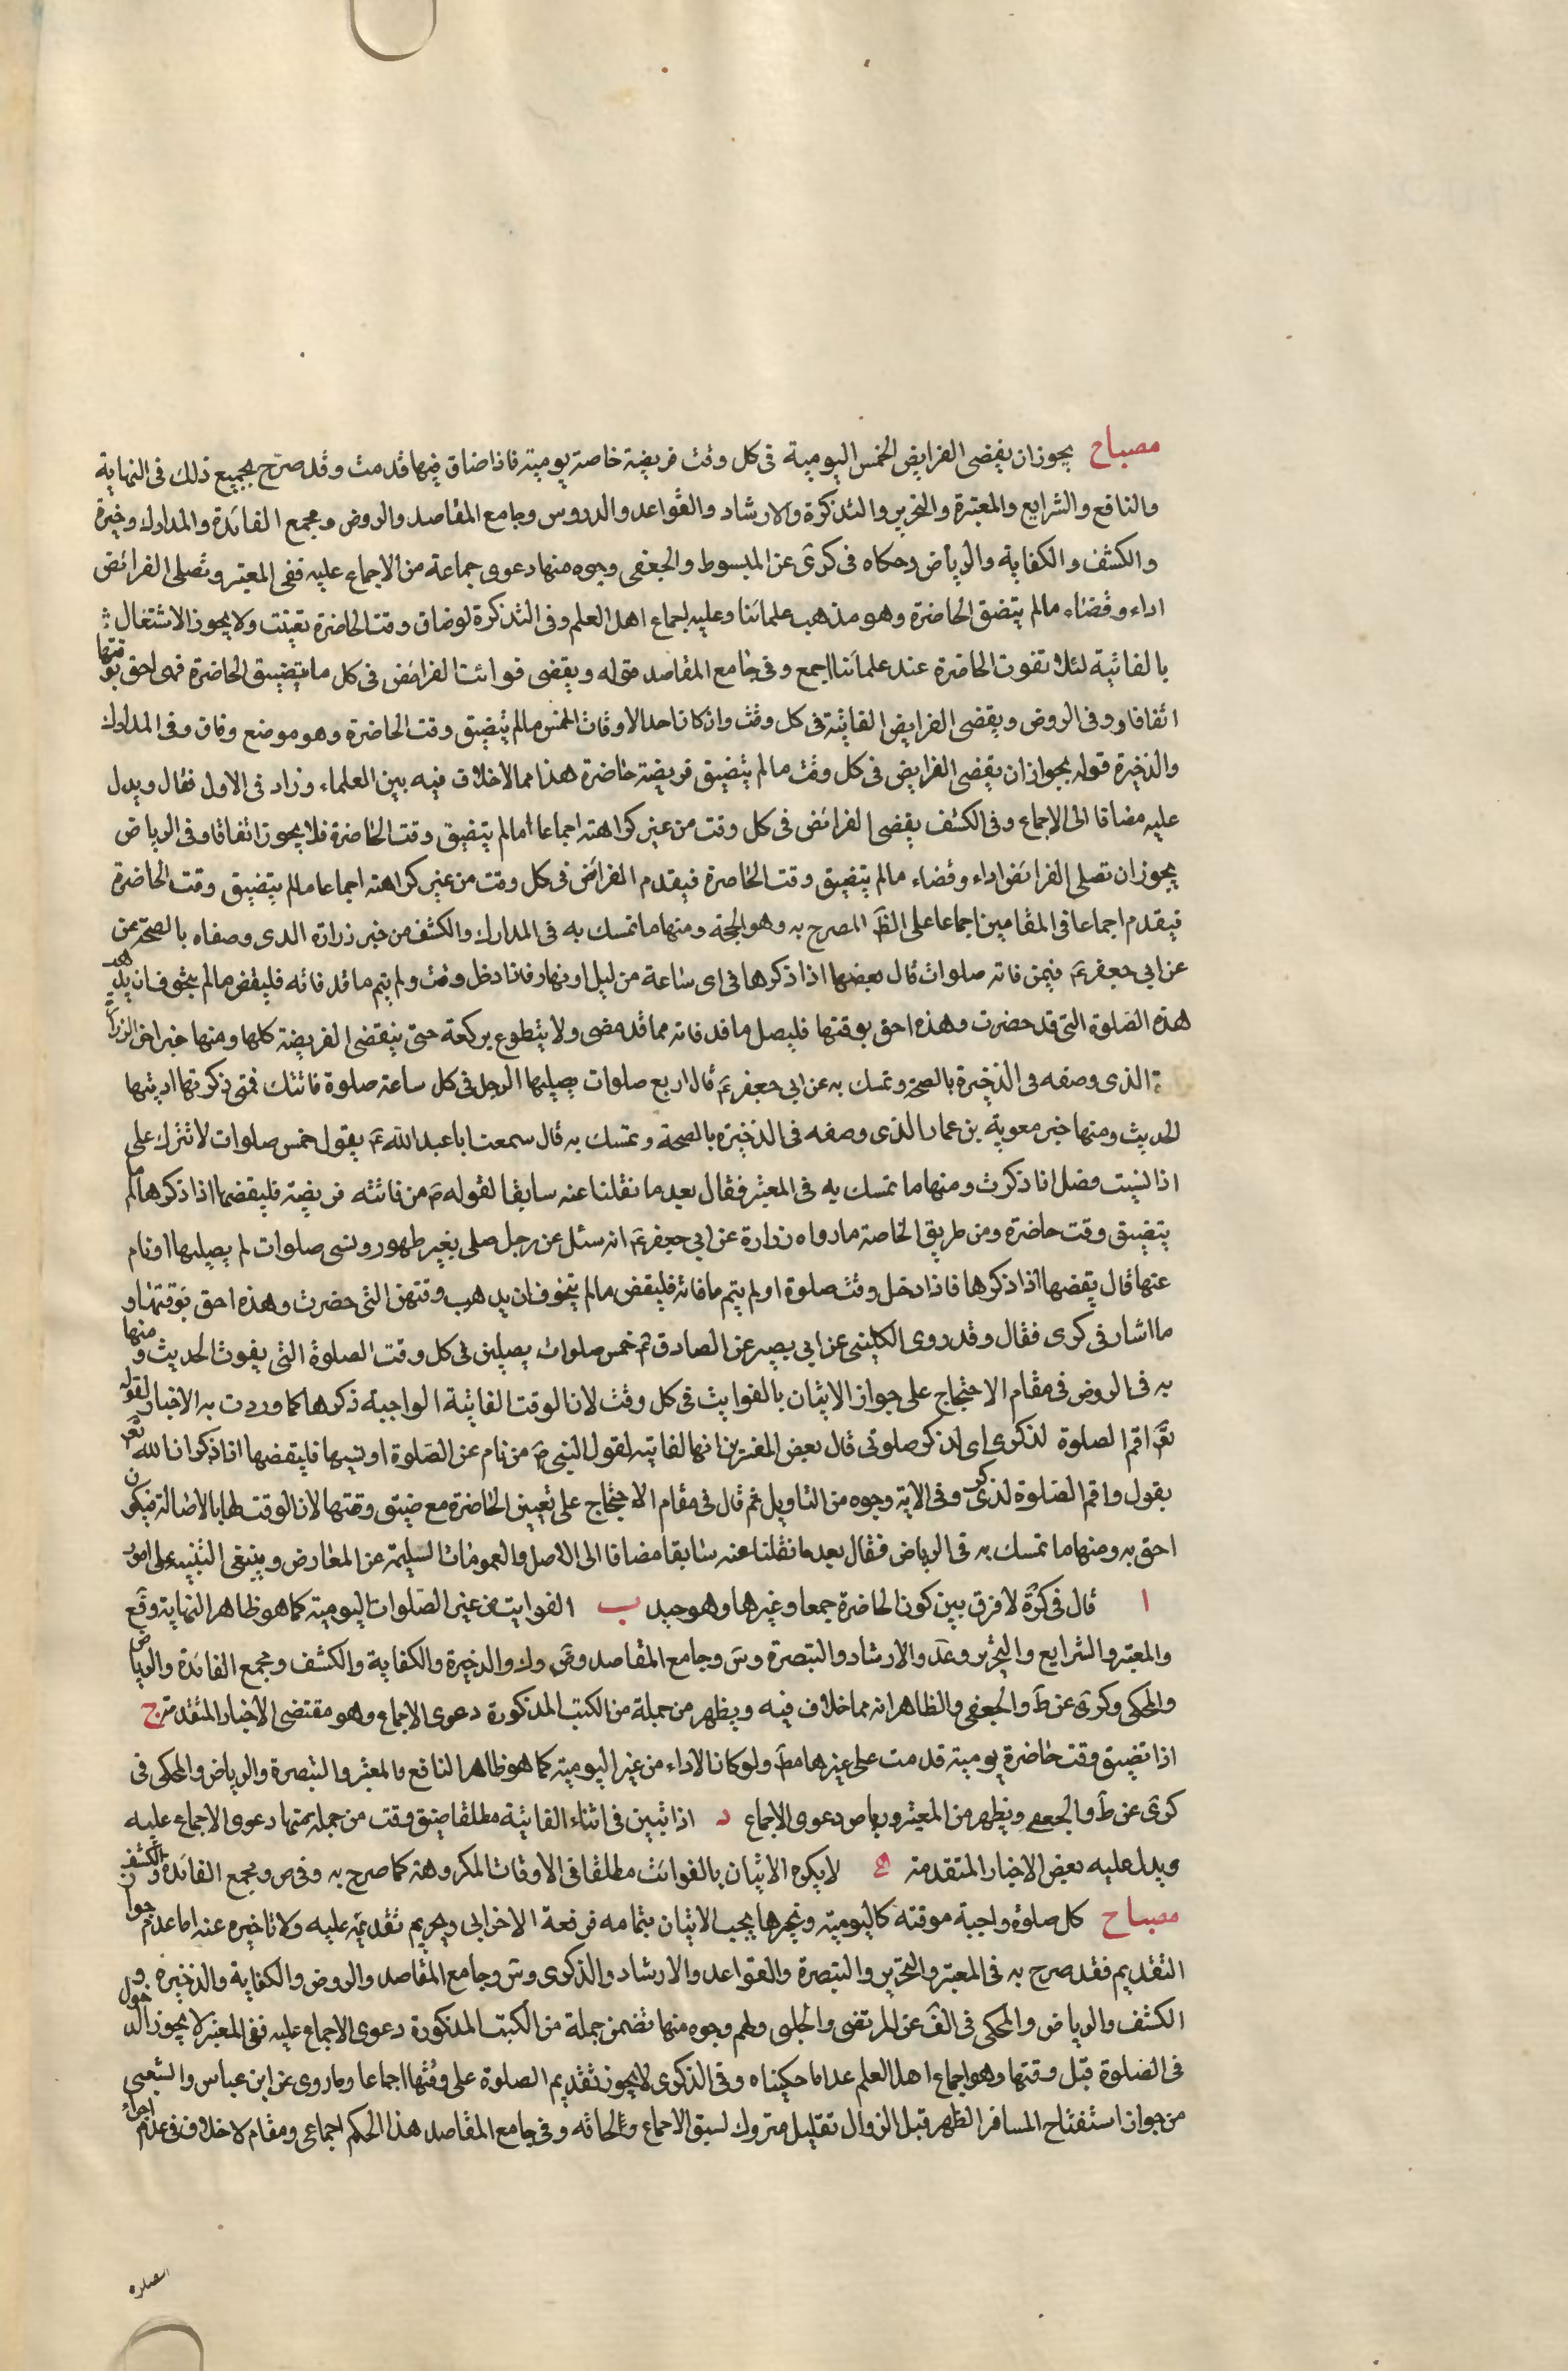 مصباح يجوز ان يقضى الفرايض الخمس اليومية فى كل وقت فريضة خاصة يومية فاذا ضاق فيها قدمت وقد صرّح بجميع ذلك فى النهاية
والنافع والشرايع والمعتبرة والتحرير والتذكرة والارشاد والقواعد والدروس وجامع المقاصد والروض ومجمع الفائدة والمدارك وخيرة
والكشف والكفاية والرياض وحكاه فى كرى عن المبسوط والجعفى وجوه منها دعوى جماعة من الاجماع عليه ففى المعتبر وتصلى الفرائض
اداء وقضاء مالم يتضيق الحاضرة وهو مذهب علمائنا وعليه اجماع اهل العلم وفى التذكرة لو ضاق وقت الحاضرة تعينت ولا يجوز الاشتغال
بالفائية لئلا تفوت الحاضرة عند علمائنا اجمع وفى جامع المقاصد قوله ويقضى فوائت الفرائض فى كل ما يتضيق الحاضرة فهى احق بوقتها
اتفاقا و وفى الروض ويقضى الفرايض الفائتة فى كل وقت وان كان احد الاوقات الخمس مالم يتضيق وقت الحاضرة وهو موضع وفاق وفى المدارك
والذخيرة قوله بجواز ان يقضى الفرايض فى كل وقت ما لم يتضيق فريضة حاضرة هذا مما لاخلاف فيه بين العلماء وزاد فى الاول فقال ويدل
عليه مضافا الى الاجماع وفى الكشف يقضى الفرائض فى كل وقت من غير كراهة اجماعا اما لم يتضيق وقت الحاضرة فلا يجوز اتفاقا وفى الرياض
يجوز ان تصلى الفرائض اداء وقضاء مالم يتضيق وقت الحاضرة فيقدم الفرائض فى كل وقت من غير كراهته اجماعا مالم يتضيق وقت الحاضرة
فيقدم اجماعا فى المقامين اجماعا على الظَّ المصرح به وهو الحجة ومنها ما تمسك به فى المدارك والكشف من خبر زرارة الذى وصفاه بالصحة عن
عن ابى جعفر ع فيمن فاته صلوات قال يقضيها اذا ذكرها فى اى ساعة من ليل او نهار فاذا دخل وقت ولم يتم ما قد فاته فليقض مالم يتخوف ان يذهب
هذه الصلوة التى قد حضرت وهذه احق بوقتها فليصل ما قد فاته مما قد مضى ولا يتطوع بركعة حتى يقضى الفريضة كلها ومنها خبر اخر لزرار
ة الذى وصفه فى الذخيرة بالصحة وتمسك به عن ابى جعفر ع قال اربع صلوات يصليها الرجل فى كل ساعة صلوة فاتتك فمتى ذكرتها اديتها
الحديث ومنها خبر معوية بن عمار الذى وصفه فى الذخيرة بالصحة وتمسك به قال سمعت ابا عبد الله ع يقول خمس صلوات لا تترك على
اذا نسيت فصل اذا ذكرت ومنها ما تمسك به فى المعتبر فقال بعد ما نقلنا عنه سابقا لقوله ص من فاتته فريضة فليقضها اذا ذكرها مالم
يتضيق وقت حاضرة ومن طريق الخاصة ما رواه زرارة عن ابى جعفر ع انه سئل عن رجل صلى بغير طهور ونسى صلوات لم يصليها او نام
عنها قال يقضها اذا ذكرها فاذا دخل وقت صلوة او لم يتم ما فاته فليقض مالم يتخوف ان يذهب وقت هذه التى حضرت وهذه احق بوقتها و
ما اشار فى كرى فقال وقد روى الكلينى عن ابى بصير عن الصادق ع خمس صلوات يصلين فى كل وقت الصلوة التى يفوت الحديث ومنها
به فى الروض فى مقام الاحتجاج على جواز الاتيان بالفوايت فى كل وقت لان الوقت الفائتة الواجبة ذكرها كما وردت به الاخبار لقوله
تعَ اقم الصلوة لذكرى اى لذكر صلوتى قال بعض المفسرين انها لفايته لقول النبى ص من نام عن الصلوة او نسيها فليقضها اذا ذكر ان الله تعَ
يقول واقم الصلوة لذكرى وفى الاية وجوه من التاويل ثم قال فى مقام الاحتجاج على تعيين الحاضرة مع ضيق وقتها لان الوقت لها بالاصالة فيكون
احق به ومنها ما تمسك به فى الرياض فقال بعد ما نقلنا عنه سابقا مضافا الى الاصل والعمومات السليمة عن المعارض وينبغى التنبيه على امور
ا قال فى كرى لا فرق بين كون الحاضرة جمعا وغيرها وهو جيد ب الفوايت من غير الصلوات اليومية كما هو ظاهر النهاية وقع
والمعتبر والشرايع والتحرير وعد والارشاد والتبصرة وس وجامع المقاصد وض وك والذخيرة والكفاية والكشف ومجمع الفائدة والرياض
والمحكى وكرى عن ط والجعفى والظاهر انه مما خلاف فيه ويظهر من جملة من الكتب المذكورة دعوى الاجماع وهو مقتضى الاخبار المتقدمة ج
اذا تضيق وقت حاضرة يومية قدمت على غيرها مط ولو كان الاداء من غير اليومية كما هو ظاهر النافع والمعتبر والتبصرة والرياض والمحكى فى
كرى عن ط والجعفى ويظهر من المعتبر ورياض دعوى الاجماع د اذا تبين فى اثناء الفائتة مطلقا ضيق وقت من جملة يمتها دعوى الاجماع عليه
ويدل عليه بعض الاخبار المتقدمة ه لا يكره الاتيان بالفوائت مطلقا فى الاوقات المكروهة كما صرح به وفى ض ومجمع الفائدة والكشف
مصباح كل صلوة واجبة موقتة كاليومية ونحوها يجب الاتيان بتمامه فى وقعة الاخر ابى ويحريم تقديمه عليه ولا تاخيره عنه اما عدم جواز
التقديم فقد صرح به فى المعتبر والتحرير والتبصرة والقواعد والارشاد والذكرى وس وجامع المقاصد والروض والكفاية والذخيرة و
الكشف والرياض والمحكى فى الف عن المرتضى والحلبى ولهم وجوه منها تضمن جملة من الكتب المذكورة دعوى الاجماع عليه ففى المعتبر لا يجوز الدخول
فى الصلوة قبل وقتها وهو اجماع اهل العلم عدا ما حكيناه وفى الذكرى لا يجوز تقديم الصلوة على وقتها اجماعا وما روى عن ابن عباس والشعبى
من جواز استفتاح المسافر الظهر قبل الزوال بقليل متروك لسبق الاجماع ولحاقه وفى جامع المقاصد هذا الحكم اجماعى ومقام لا خلاف فى عدم اجزاء
الصلوة